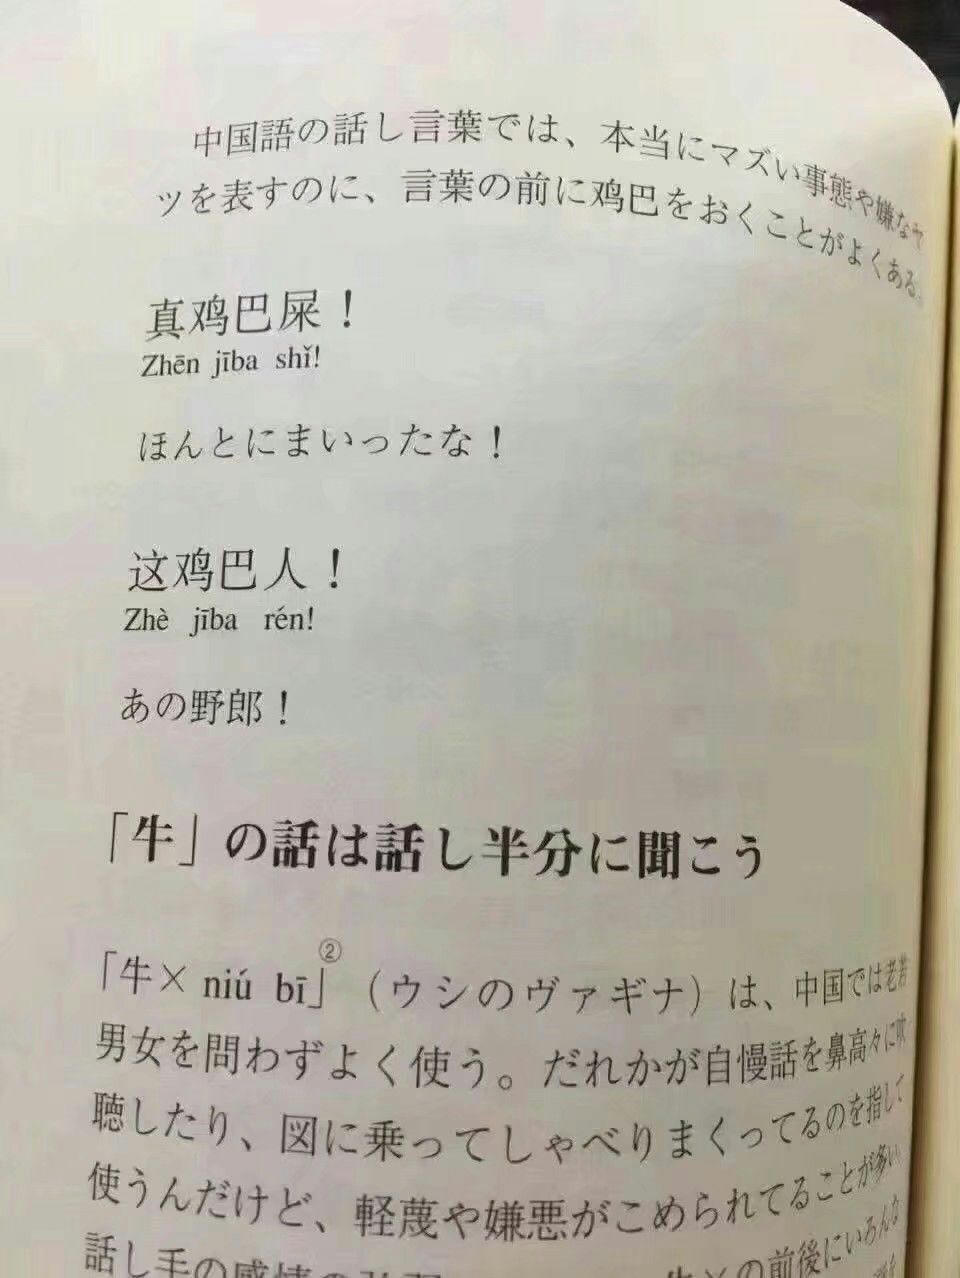 中国語の話し言葉では、本当にマズい事態や嫌なヤ
ツを表すのに、言葉の前に鸡巴をおくことがよくある。
真鸡巴屎！
Zhēn jība shǐ!
ほんとにまいったな！
这鸡巴人！
Zhè jība rén!
あの野郎！
「牛」の話は話し半分に聞こう
「牛× niú bī」②（ウシのヴァギナ）は、中国では老若
男女を問わずよく使う。だれかが自慢話を鼻高々に吹
聴したり、図に乗ってしゃべりまくってるのを指して
使うんだけど、軽蔑や嫌悪がこめられてることが多い。
話し手の感情の 牛×の前後にいろんな